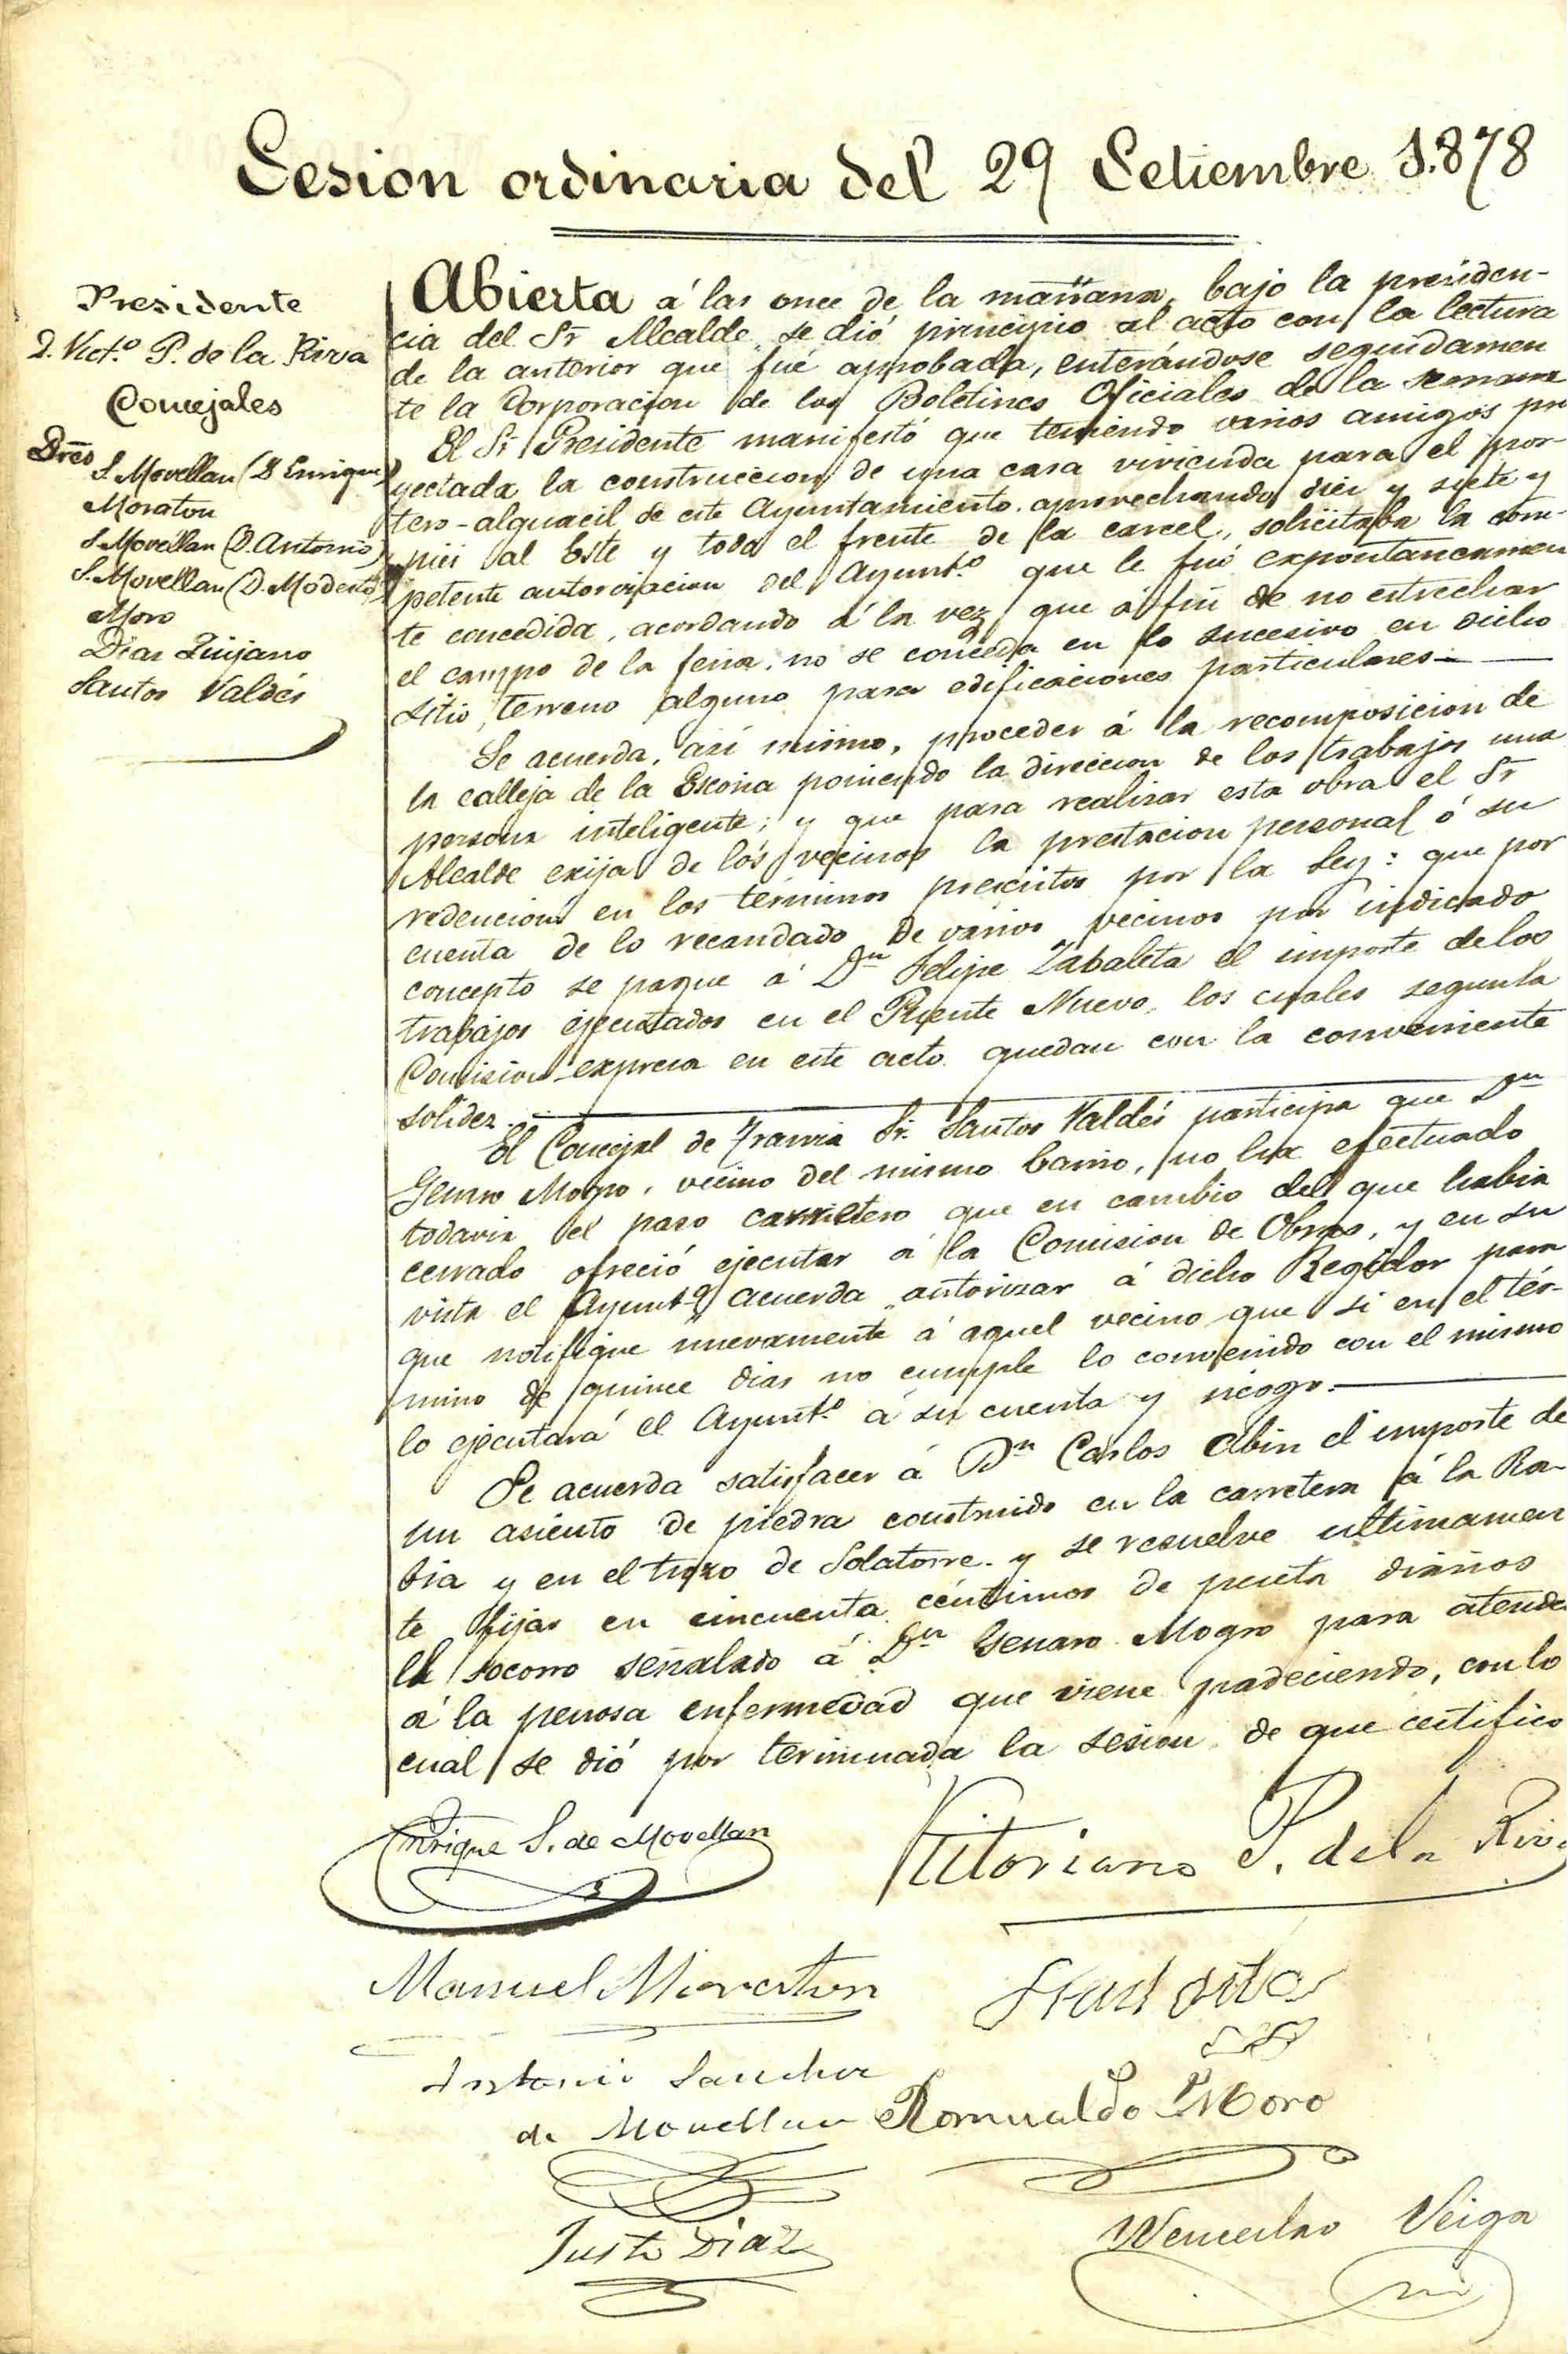 Sesion ordinaria del 29 Setiembre 1.878
Presidente
D. Vict.º P. de la Riva
Concejales
Sres
S. Movellan (D Enrique)
Moraton
S. Movellan (D. Antonio)
S. Movellan (D. Modesto)
Moro
Dias Quijano
Santos Valdés
Abierta á las once de la mañana, bajo la presiden-
cia del Sr Alcalde se dió principio al acto con la lectura
de la anterior que fué aprobada, enterándose seguidamen
te la Corporacion de los Boletines Oficiales de la semana
El Sr Presidente manifestó que teniendo varios amigos pro
yectada la construccion de una casa vivienda para el por-
tero-alguacil de este Ayuntamiento, aprovechando diez y siete y
pies al Este y todo el frente de la carcel, solicitaba la com-
petente autorizacion del Ayunt.º que le fué expontaneamen
te concedida, acordando á la vez que á fin de no estrechar
el campo de la feria, no se conceda en lo sucesivo en dicho
sitio, terreno alguno para edificaciones particulares.
Se acuerda, así mismo, proceder á la recomposicion de
la calleja de la Escoria poniendo la direccion de los trabajos una
persona inteligente; y que para realizar esta obra el Sr
Alcalde exija de los vecinos la prestacion personal ó su
redencion en los términos prescritos por la Ley: que por
cuenta de lo recaudado de varios vecinos por indicado
concepto se pague á Dn Felipe Zabaleta el importe de los
trabajos ejecutados en el Puente Nuevo, los cuales segun la
Comision expresa en este acto quedan con la conveniente
solidez.
El Concejal de Sr. Santos Valdés participa que Dn
Genaro Mogro, vecino del mismo barrio, no ha efectuado
todavia el paso carretero que en cambio del que habia
cerrado ofreció ejecutar á la Comision de Obras, y en su
vista el Ayunt.º acuerda autorizar á dicho Regidor para
que notifique nuevamente á aquel vecino que si en el tér-
mino de quince dias no cumple lo convenido con el mismo
lo ejecutará el Ayunt.º á su cuenta y riesgo.
Se acuerda satisfacer á Dn Carlos Abin el importe de
un asiento de piedra construido en la carretera á la Ra-
bia y en el trozo de Solatorre. y se resuelve ultimamen
te fijar en cincuenta céntimos de peseta diarios
el socorro señalado á Dn Genaro Mogro para atender
á la penosa enfermedad que viene padeciendo, con lo
cual se dió por terminada la sesion de que certifico
Enrique S. de Movellan
Vitoriano P. de la Riva
Manuel Moraton
Antonio Sanchez
de Movellan
Romualdo Moro
Justo Diaz
Wenceslao Veiga